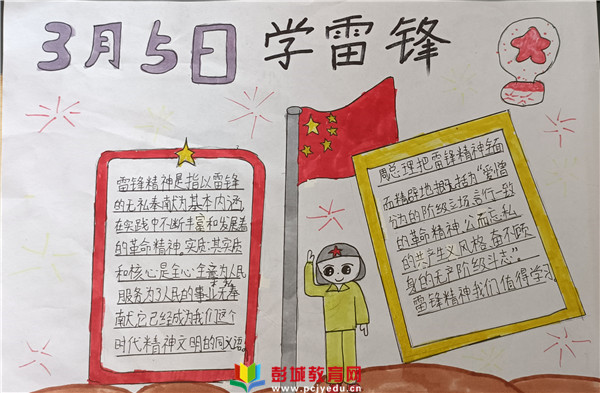 3月5日 学雷锋
雷锋精神是指以雷锋
的无私奉献为基本内涵,
在实践中不断丰富和发展着
的革命精神。实质其实质
和核心是全心全意为人民
服务为了人民的事业无私奉
献,它已经成为我们这个
时代精神文明的同义语。
周总理把雷锋精神全面
而精辟地概括为“爱憎
分明的阶级立场言行一致
的革命精神,公而忘私
的共产主义风格奋不顾
身的无产阶级斗志”。
雷锋精神我们值得学习
彭城教育网
www.pcjyedu.cn